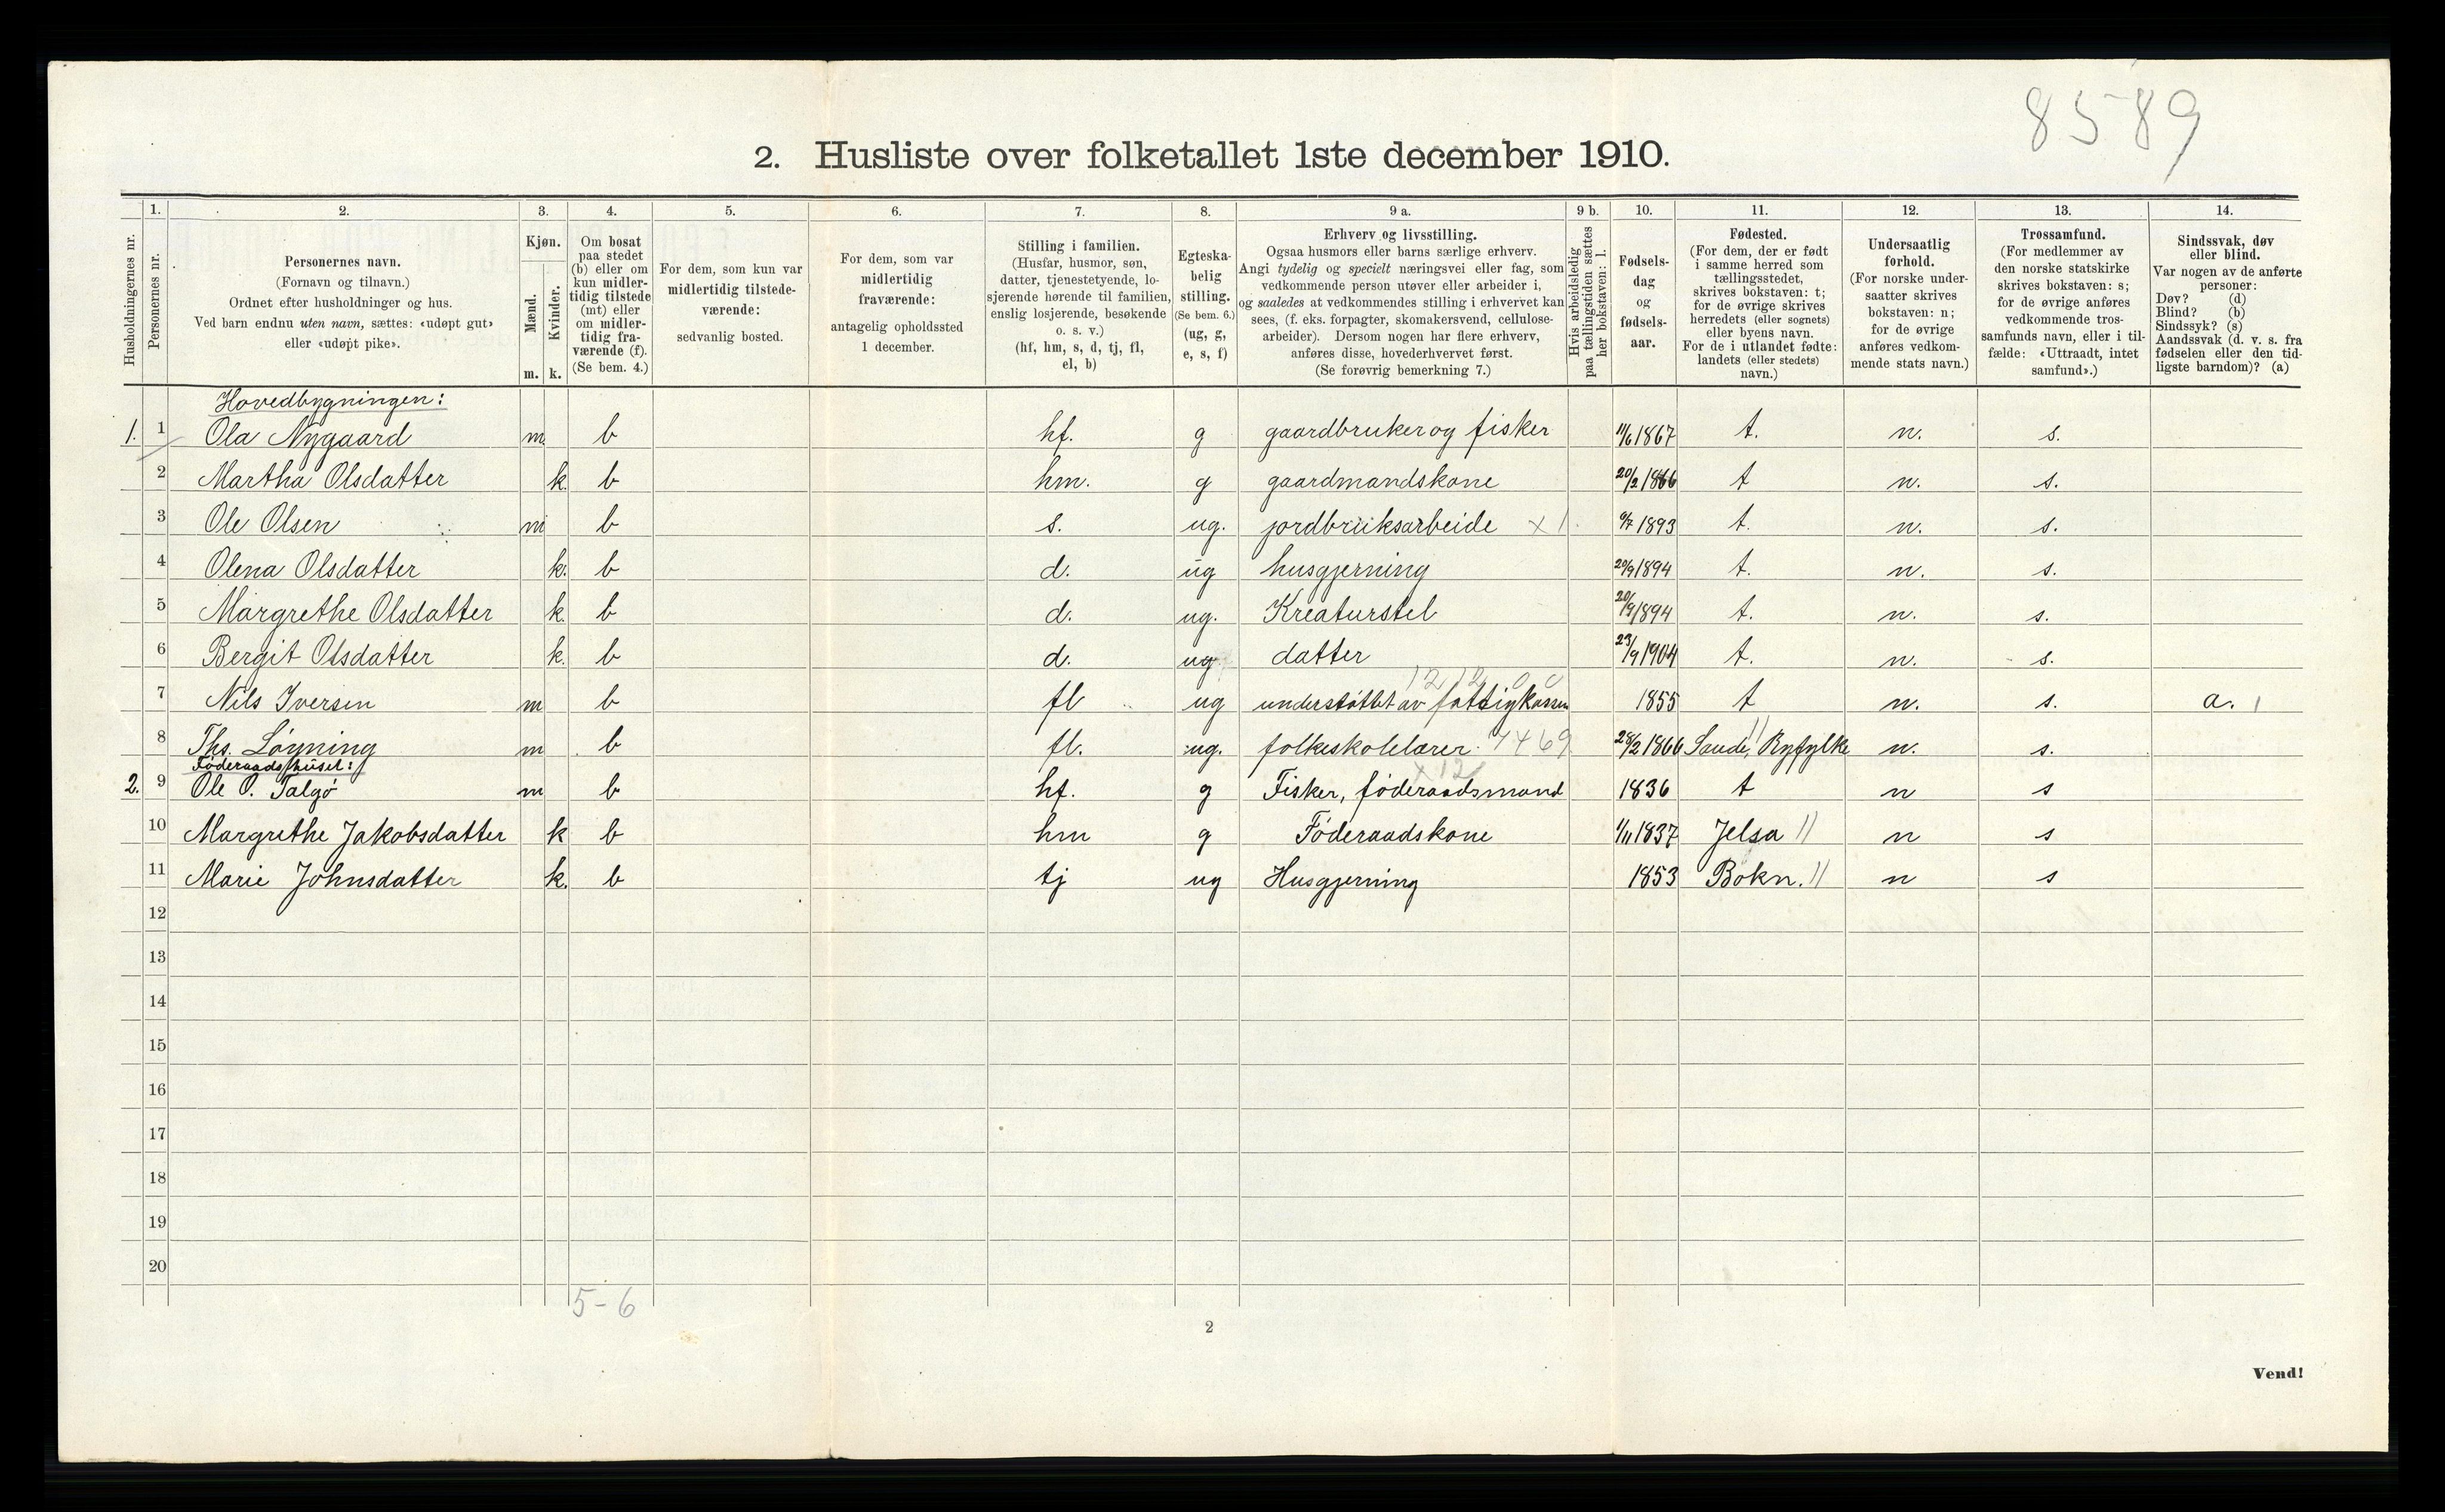 8589
2. Husliste over folketallet 1ste december 1910.
1. 2. 3. 4. 5. 6. 7. 8. 9 a. 9 b. 10. 11. 12. 13. 14.
Husholdningernes nr.
Personernes nr.
Personernes navn.
(Fornavn og tilnavn.)
Ordnet efter husholdninger og hus.
Ved barn endnu uten navn, sættes: «udøpt gut»
eller «udøpt pike».
Kjøn.
Mænd.
Kvinder.
m. k.
Om bosat
paa stedet
(b) eller om
kun midler-
tidig tilstede
(mt) eller
om midler-
tidig fra-
værende (f).
(Se bem. 4.)
For dem, som kun var
midlertidig tilstede-
værende:
sedvanlig bosted.
For dem, som var
midlertidig
fraværende:
antagelig opholdssted
1 december.
Stilling i familien.
(Husfar, husmor, søn,
datter, tjenestetyende, lo-
sjerende hørende til familien,
enslig losjerende, besøkende
o. s. v.)
(hf, hm, s, d, tj, fl,
el, b)
Egteska-
belig
stilling.
(Se bem. 6.)
(ug, g,
e, s, f)
Erhverv og livsstilling.
Ogsaa husmors eller barns særlige erhverv.
Angi tydelig og specielt næringsvei eller fag, som
vedkommende person utøver eller arbeider i,
og saaledes at vedkommendes stilling i erhvervet kan
sees, (f. eks. forpagter, skomakersvend, cellulose-
arbeider). Dersom nogen har flere erhverv,
anføres disse, hovederhvervet først.
(Se forøvrig bemerkning 7.)
Hvis arbeidsledig
paa tællingstiden sættes
her bokstaven: l.
Fødsels-
dag
og
fødsels-
aar.
Fødested.
(For dem, der er født
i samme herred som
tællingsstedet,
skrives bokstaven: t;
for de øvrige skrives
herredets (eller sognets)
eller byens navn.
For de i utlandet fødte:
landets (eller stedets)
navn.)
Undersaatlig
forhold.
(For norske under-
saatter skrives
bokstaven: n;
for de øvrige
anføres vedkom-
mende stats navn.)
Trossamfund.
(For medlemmer av
den norske statskirke
skrives bokstaven: s;
for de øvrige anføres
vedkommende tros-
samfunds navn, eller i til-
fælde: «Uttraadt, intet
samfund».)
Sindssvak, døv
eller blind.
Var nogen av de anførte
personer:
Døv? (d)
Blind? (b)
Sindssyk? (s)
Aandssvak (d. v. s. fra
fødselen eller den tid-
ligste barndom)? (a)
Hovedbygningen:
1. 1 Ola Nygaard m. b hf. g gaardbruker og fisker 11/6 1867 t. n. s.
2 Martha Olsdatter k. b hm. g gaardmandskone 20/2 1866 t n. s.
3 Ole Olsen m b s. ug. jordbruksarbeide x 1. 9/7 1893 t. n. s.
4 Olena Olsdatter k. b d. ug husgjerning 20/9 1894 t. n. s.
5 Margrethe Olsdatter k. b d. ug. Kreaturstel 20/9 1894 t. n. s.
6 Bergit Olsdatter k. b d. ug. datter 23/9 1904 t. n. s.
7 Nils Iversen m b fl ug understøttet av fattigkassen 1855 t n. s. a. 1
8 Ths. Løyning m b fl. ug. folkeskolelærer. 7469 28/2 1866 Saude, Ryfylke n. s.
Føderaadshuset:
2. 9 Ole O. Talgø m b hf. g Fisker, føderaadsmand x 12 1836 t n s
10 Margrethe Jakobsdatter k b hm g Føderaadskone 1/11 1837 Jelsa // n s
11 Marie Johnsdatter k. b tj ug Husgjerning 1853 Bokn. // n s
12
13
14
15
16
17
18
19
20
5-6
2
Vend!